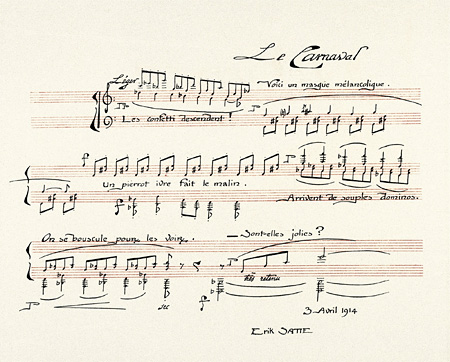 Le Carnaval
Léger
Voici un masque mélancolique.
Les confetti descendent !
Un pierrot ivre fait le malin.
Arrivent de souples dominos.
On se bouscule pour les voir.
— Sont-elles jolies ?
très retenu
sec
3 Avril 1914
Erik SATIE